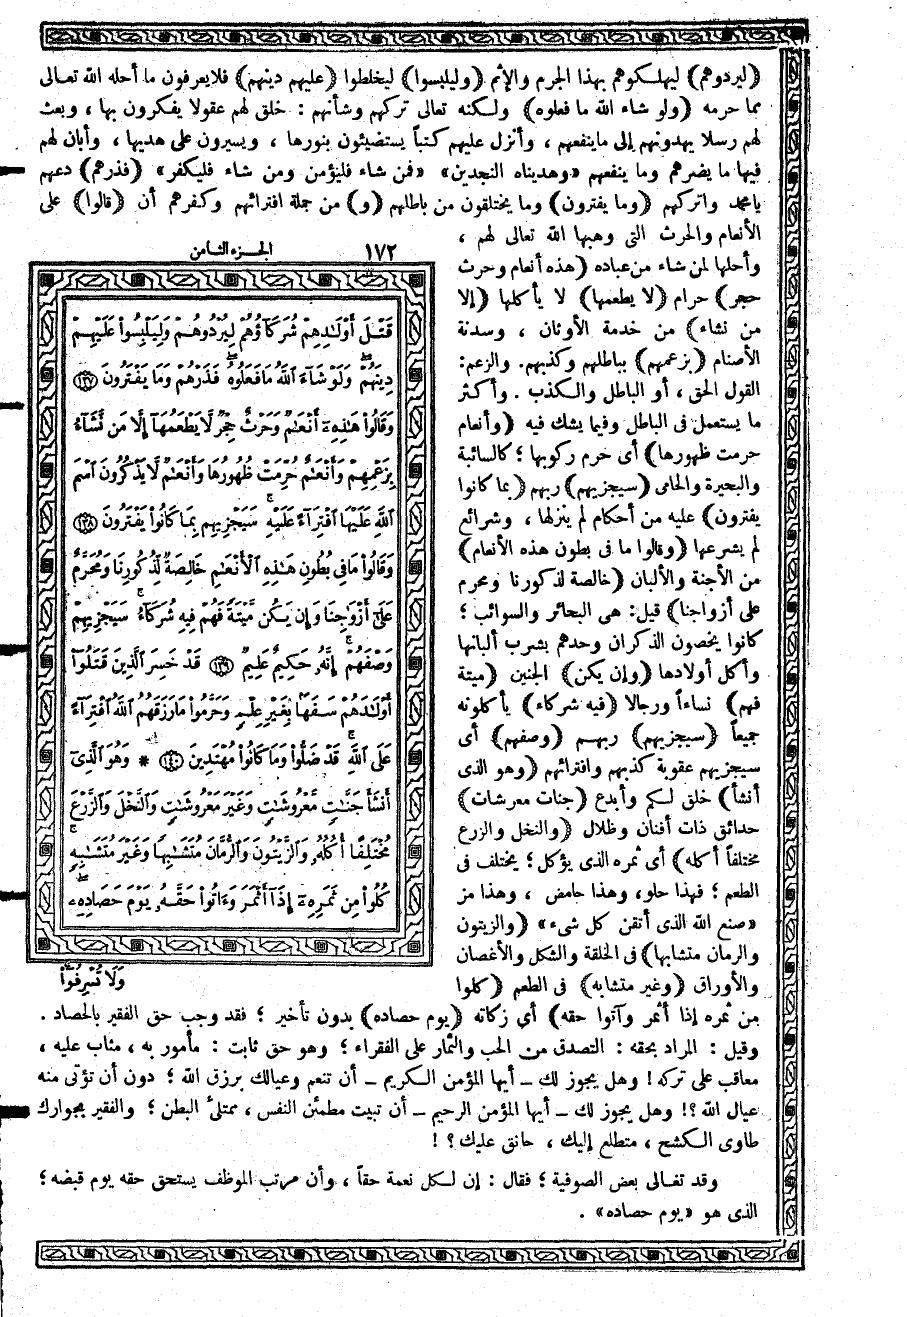 (ليردوهم) ليهلكوهم بهذا الجرم والإثم (وليلبسوا) ليخلطوا (عليهم دينهم) فلا يعرفون ما أحله الله تعالى
مما حرمه (ولو شاء الله ما فعلوه) ولكنه تعالى تركهم وشأنهم : خلق لهم عقولا يفكرون بها ، وبعث
لهم رسلا يهدونهم إلى ما ينفعهم ، وأنزل عليهم كتباً يستضيئون بنورها ، ويسيرون على هديها ، وأبان لهم
فيها ما يضرهم وما ينفعهم «وهديناه النجدين» «فمن شاء فليؤمن ومن شاء فليكفر» (فذرهم) دعهم
يا محمد واتركهم (وما يفترون) وما يختلقون من باطلهم (و) من جملة افترائهم وكفرهم أن (قالوا) على
الأنعام والحرث التى وهبها الله تعالى لهم ،
وأحلها لمن شاء من عباده (هذه أنعام وحرث
حجر) حرام (لا يطعمها) لا يأكلها (إلا
من نشاء) من خدمة الأوثان ، وسدنة
الأصنام (بزعمهم) بباطلهم وكذبهم. والزعم:
القول الحق ، أو الباطل والكذب . وأكثر
ما يستعمل فى الباطل وفيما يشك فيه (وأنعام
حرمت ظهورها) أى حرم ركوبها ؛ كالسائبة
والبحيرة والحامى (سيجزيهم) ربهم (بما كانوا
يفترون) عليه من أحكام لم ينزلها ، وشرائع
لم يشرعها (وقالوا ما فى بطون هذه الأنعام)
من الأجنة والألبان (خالصة لذكورنا ومحرم
على أزواجنا) قيل: هى البحائر والسوائب ؛
كانوا يخصون الذكران وحدهم بشرب ألبانها
وأكل أولادها (وإن يكن) الجنين (ميتة
فهم) نساءاً ورجالا (فيه شركاء) يأكلونه
جميعاً (سيجزيهم) ربهم (وصفهم) أى
سيجزيهم عقوبة كذبهم وافترائهم (وهو الذى
أنشأ) خلق لكم وأبدع (جنات معرشات)
حدائق ذات أفنان وظلال (والنخل والزرع
مختلفاً أكله) أى ثمره الذى يؤكل ؛ يختلف فى
الطعم ؛ فهذا حلو، وهذا حامض ، وهذا مز
«صنع الله الذى أتقن كل شىء» (والزيتون
والرمان متشابها) فى الخلقة والشكل والأغصان
والأوراق (وغير متشابه) فى الطعم (كلوا
١٧٢
الجزء الثامن
قَتْلَ أَوْلَٰدِهِمْ شُرَكَآؤُهُمْ لِيُرْدُوهُمْ وَلِيَلْبِسُوا۟ عَلَيْهِمْ
دِينَهُمْ ۖ وَلَوْ شَآءَ ٱللَّهُ مَا فَعَلُوهُ ۖ فَذَرْهُمْ وَمَا يَفْتَرُونَ ١٣٧
وَقَالُوا۟ هَٰذِهِۦٓ أَنْعَٰمٌ وَحَرْثٌ حِجْرٌ لَّا يَطْعَمُهَآ إِلَّا مَن نَّشَآءُ
بِزَعْمِهِمْ وَأَنْعَٰمٌ حُرِّمَتْ ظُهُورُهَا وَأَنْعَٰمٌ لَّا يَذْكُرُونَ ٱسْمَ
ٱللَّهِ عَلَيْهَا ٱفْتِرَآءً عَلَيْهِ ۚ سَيَجْزِيهِم بِمَا كَانُوا۟ يَفْتَرُونَ ١٣٨
وَقَالُوا۟ مَا فِى بُطُونِ هَٰذِهِ ٱلْأَنْعَٰمِ خَالِصَةٌ لِّذُكُورِنَا وَمُحَرَّمٌ
عَلَىٰٓ أَزْوَٰجِنَا ۖ وَإِن يَكُن مَّيْتَةً فَهُمْ فِيهِ شُرَكَآءُ ۚ سَيَجْزِيهِمْ
وَصْفَهُمْ ۚ إِنَّهُۥ حَكِيمٌ عَلِيمٌ ١٣٩ قَدْ خَسِرَ ٱلَّذِينَ قَتَلُوٓا۟
أَوْلَٰدَهُمْ سَفَهًۢا بِغَيْرِ عِلْمٍ وَحَرَّمُوا۟ مَا رَزَقَهُمُ ٱللَّهُ ٱفْتِرَآءً
عَلَى ٱللَّهِ ۚ قَدْ ضَلُّوا۟ وَمَا كَانُوا۟ مُهْتَدِينَ ١٤٠ * وَهُوَ ٱلَّذِىٓ
أَنشَأَ جَنَّٰتٍ مَّعْرُوشَٰتٍ وَغَيْرَ مَعْرُوشَٰتٍ وَٱلنَّخْلَ وَٱلزَّرْعَ
مُخْتَلِفًا أُكُلُهُۥ وَٱلزَّيْتُونَ وَٱلرُّمَّانَ مُتَشَٰبِهًا وَغَيْرَ مُتَشَٰبِهٍ ۚ
كُلُوا۟ مِن ثَمَرِهِۦٓ إِذَآ أَثْمَرَ وَءَاتُوا۟ حَقَّهُۥ يَوْمَ حَصَادِهِۦ ۖ
وَلَا تُسْرِفُوٓا۟
من ثمره إذا أثمر وآتوا حقه) أي زكاته (يوم حصاده) بدون تأخير ؛ فقد وجب حق الفقير بالحصاد .
وقيل : المراد بحقه : التصدق من الحب والثمار على الفقراء ؛ وهو حق ثابت : مأمور به ، مثاب عليه ،
معاقب على تركه ! وهل يجوز لك – أيها المؤمن الكريم – أن تنعم وعيالك برزق الله ؛ دون أن تؤتى منه
عيال الله ؟! وهل يجوز لك – أيها المؤمن الرحيم – أن تبيت مطمئن النفس ، ممتلئ البطن ؛ والفقير بجوارك
طاوى الكشح ، متطلع إليك ، حانق عليك ؟ !
وقد تغالى بعض الصوفية ؛ فقال : إن لكل نعمة حقاً ، وأن مرتب الموظف يستحق حقه يوم قبضه ؛
الذى هو «يوم حصاده» .